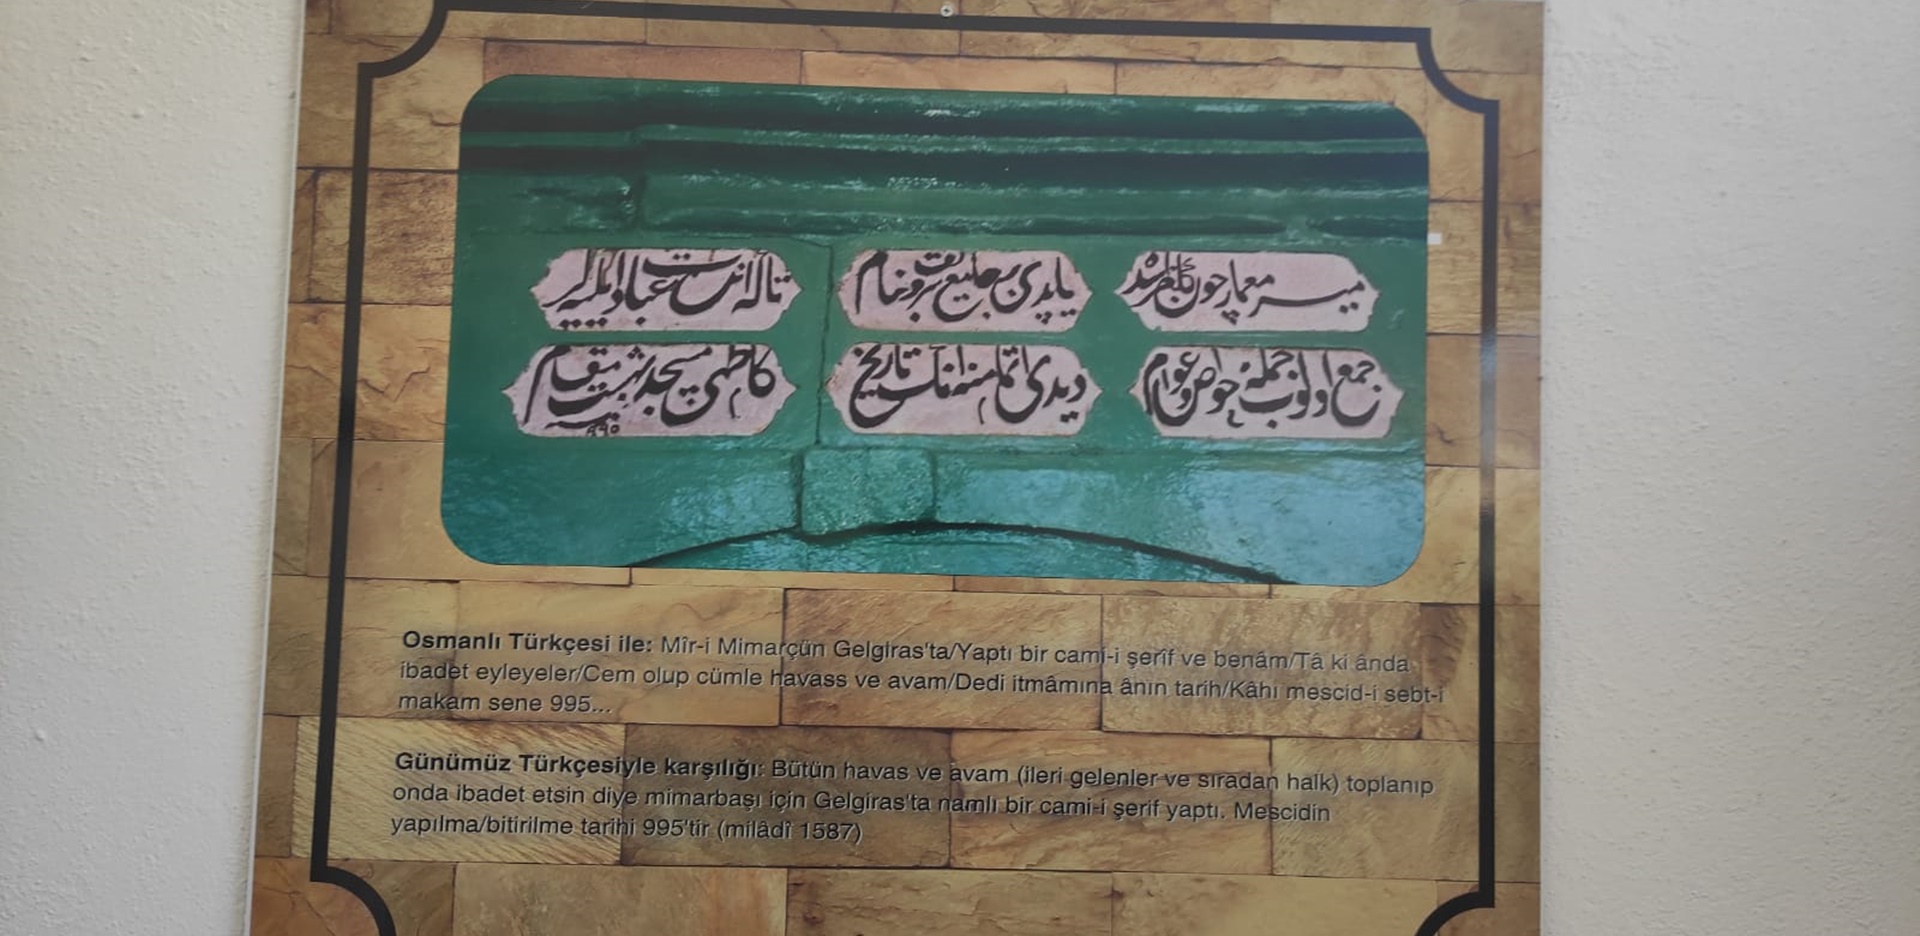 میر معمار چون
یاپدی بر جامع شریف و بنام
تا که انده عبادت ایلیه لر
جمع اولوب جمله خواص و عوام
دیدی اتمامنه انک تاریخ
مسجد مقام
سنه ٩٩٥
Osmanlı Türkçesi ile: Mîr-i Mimarçün Gelgiras'ta/Yaptı bir cami-i şerîf ve benâm/Tâ ki ânda
ibadet eyleyeler/Cem olup cümle havass ve avam/Dedi itmâmına ânın tarih/Kâhı mescid-i sebt-i
makam sene 995...
Günümüz Türkçesiyle karşılığı: Bütün havas ve avam (ileri gelenler ve sıradan halk) toplanıp
onda ibadet etsin diye mimarbaşı için Gelgiras'ta namlı bir cami-i şerif yaptı. Mescidin
yapılma/bitirilme tarihi 995'tir (milâdî 1587)